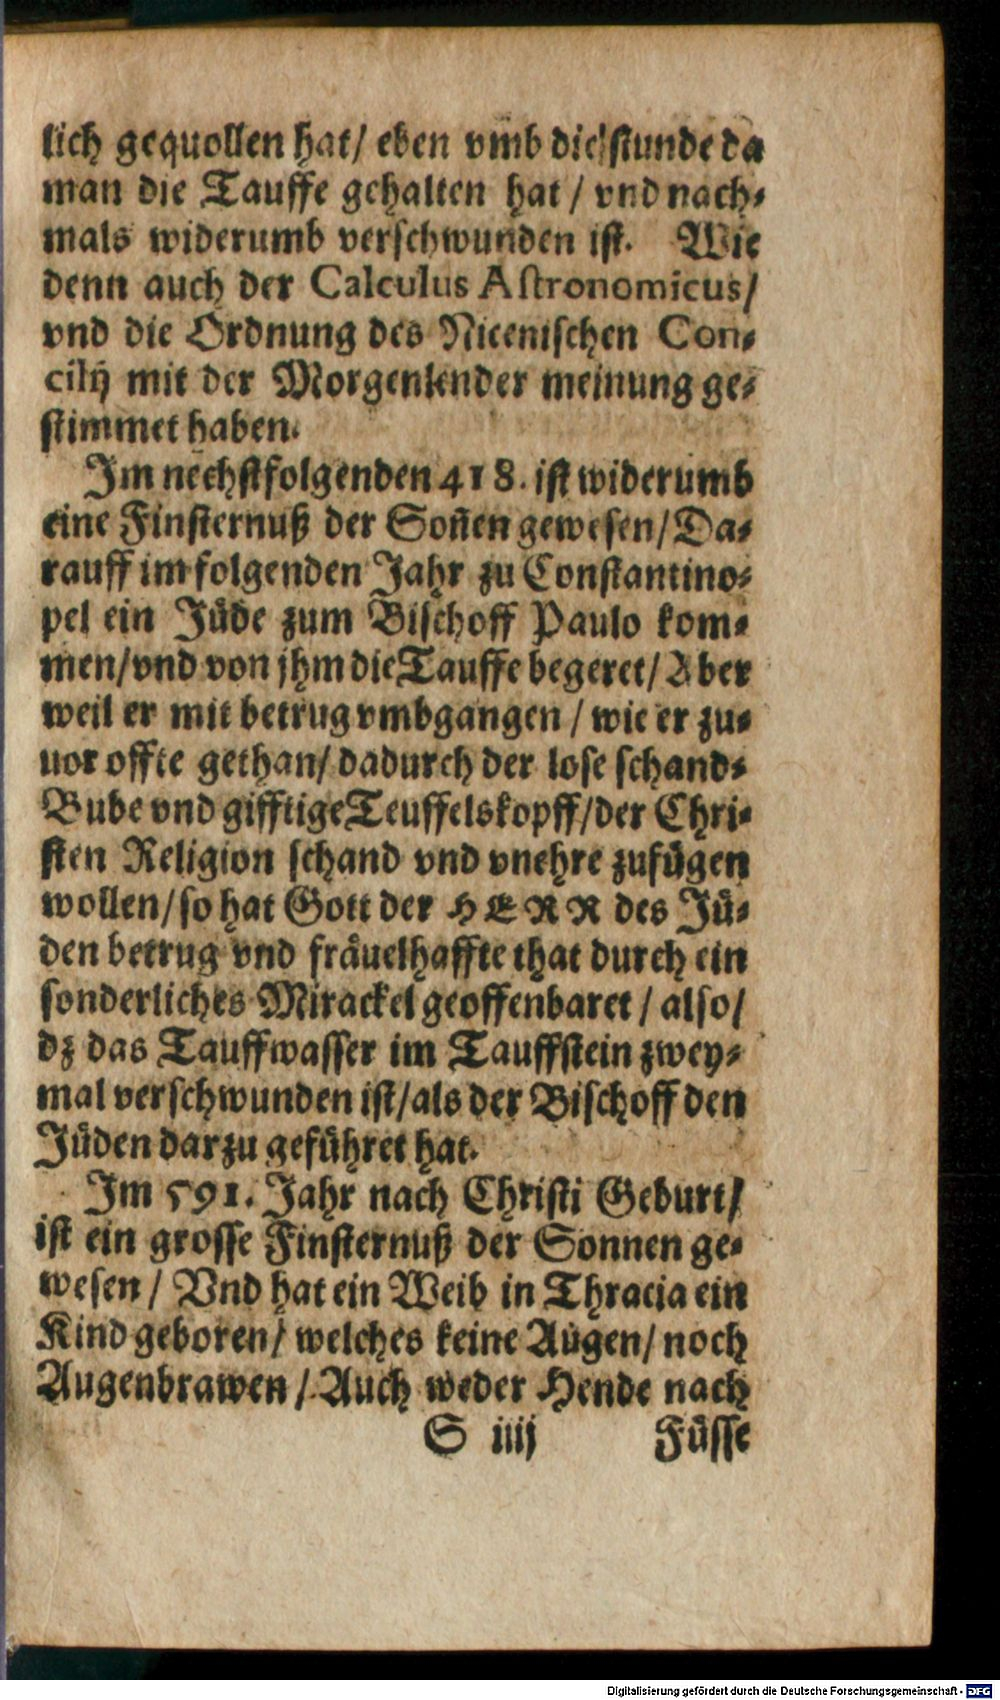 lich gequollen hat/ eben vmb die stunde da
man die Tauffe gehalten hat / vnd nach-
mals widerumb verschwunden ist. Wie
denn auch der Calculus Astronomicus/
vnd die Ordnung des Nicenischen Con-
cilij mit der Morgenlender meinung ge-
stimmet haben.
Im nechstfolgenden 418. ist widerumb
eine Finsternuß der Soñen gewesen/ Da-
rauff im folgenden Jahr zu Constantino-
pel ein Jüde zum Bischoff Paulo kom-
men/ vnd von jhm die Tauffe begeret/ Aber
weil er mit betrug vmbgangen / wie er zu-
uor offte gethan/ dadurch der lose schand-
Bube vnd gifftige Teuffelskopff/ der Chri-
sten Religion schand vnd vnehre zufügen
wollen/ so hat Gott der HERR des Jü-
den betrug vnd fräuelhaffte that durch ein
sonderliches Mirackel geoffenbaret / also/
dz das Tauffwasser im Tauffstein zwey-
mal verschwunden ist/ als der Bischoff den
Jüden darzu geführet hat.
Im 591. Jahr nach Christi Geburt/
ist ein grosse Finsternuß der Sonnen ge-
wesen / Vnd hat ein Weib in Thracia ein
Kind geboren/ welches keine Augen/ noch
Augenbrawen / Auch weder Hende nach
S iiij Füsse
Digitalisierung gefördert durch die Deutsche Forschungsgemeinschaft - DFG